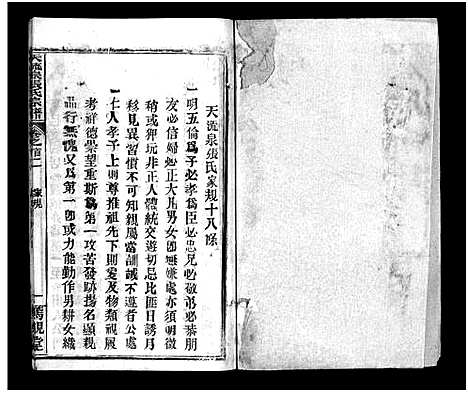 天流泉張氏家規十八條
一明五倫爲子必孝爲臣必忠兄必敬弟必恭朋
友必信婦必正大凡男女卽無嫌處亦須明徵
稍或狎玩非正人體統交遊切忌比匪日誘月
移見異習慣不可知親屬當訓誡不遵者公處
一仁人孝子上則尊推祖先下則愛及物類視履
考祥德業望重斯爲第一攻苦發跡揚名顯親
品行無愧又爲第一卽或力能勤作男耕女織
天流泉張氏宗譜
卷之首二
家規
一
堂